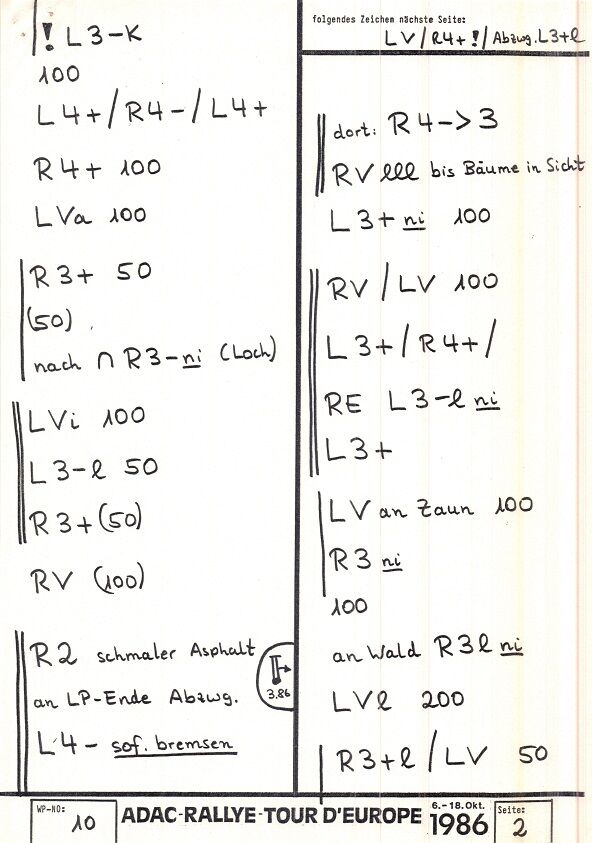 ! L3-K
100
L4+/R4-/L4+
R4+ 100
LVa 100
R3+ 50
(50)
nach ∩ R3-ni (Loch)
LVi 100
L3-l 50
R3+(50)
RV (100)
R2 schmaler Asphalt
an LP-Ende Abzwg.
3.86
L4- sof. bremsen
folgendes Zeichen nächste Seite:
LV/R4+!/Abzwg.L3+l
dort: R4->3
RV lll bis Bäume in Sicht
L3+ ni 100
RV/LV 100
L3+/R4+/
RE L3-l ni
L3+
LV an Zaun 100
R3 ni
100
an Wald R3l ni
LVl 200
R3+l/LV 50
WP-NO: 10
ADAC-RALLYE-TOUR D'EUROPE 6.-18.Okt. 1986
Seite: 2